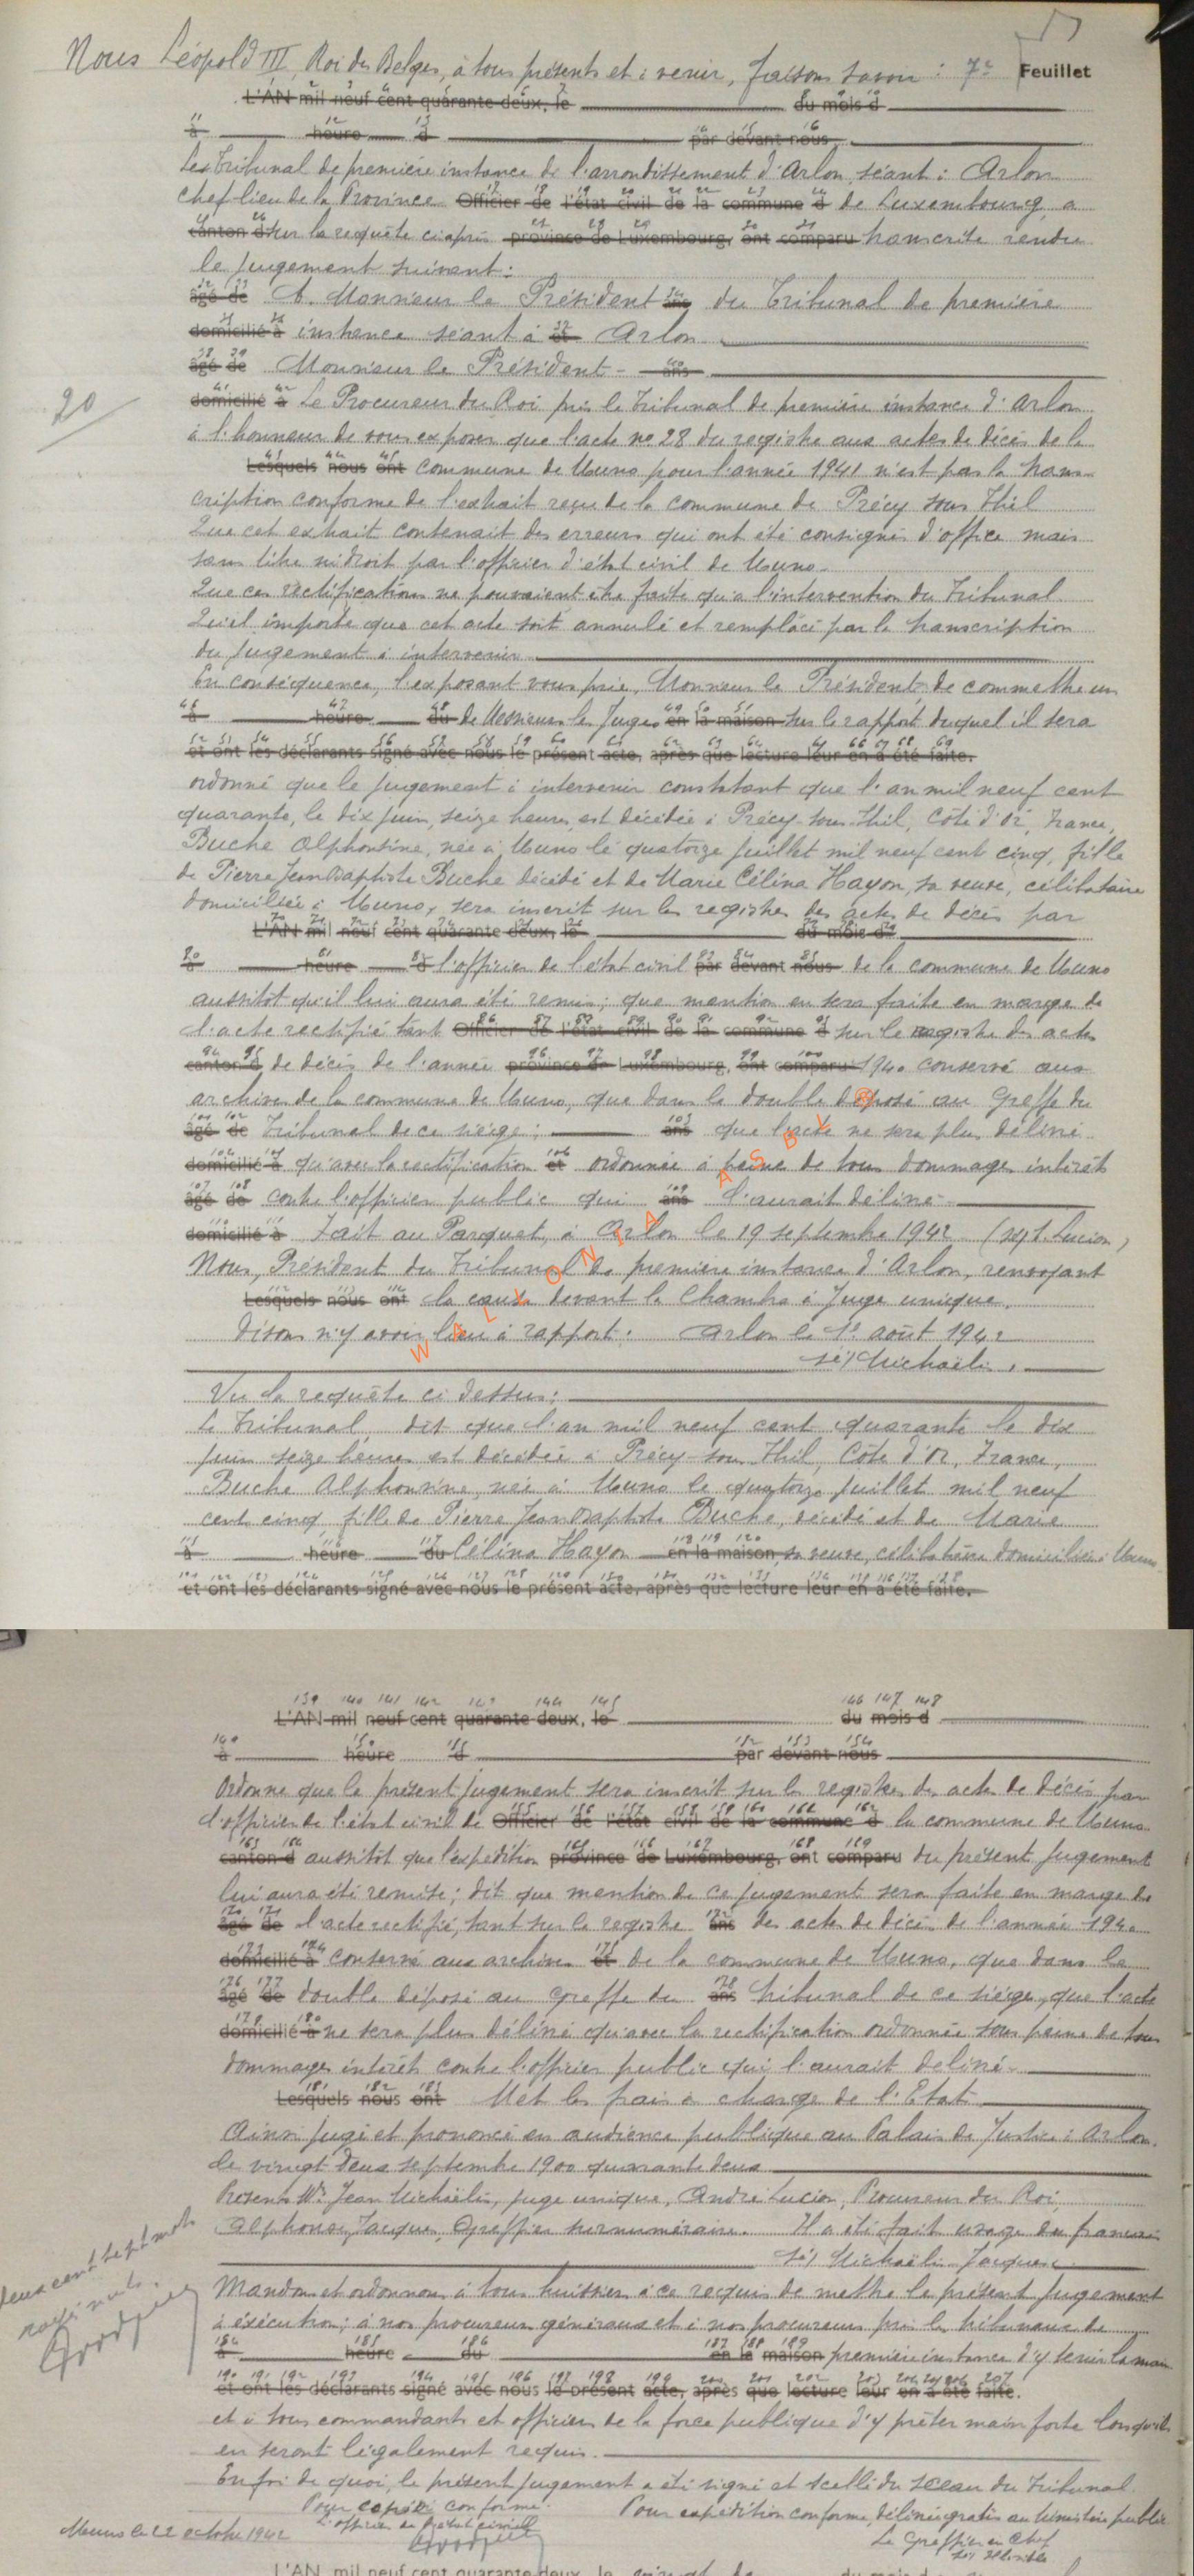 Nous Léopold III, Roi des Belges, à tous présents et à venir, faisons savoir : 7e Feuillet
L'AN mil neuf cent quarante deux, le du mois d
à heure d par devant nous
Les Tribunal de première instance de l'arrondissement d'Arlon, séant à Arlon
chef lieu de la Province Officier de l'état civil de la commune d de Luxembourg, a
canton d sur la requête ci après province de Luxembourg, ont comparu transcrite rendu
le jugement suivant :
âgé de A. Monsieur le Président ans du Tribunal de première
domicilié à instance séant à et Arlon
âgé de Monsieur le Président - ans
domicilié à Le Procureur du Roi près le Tribunal de première instance d'Arlon
20
à l'honneur de vous exposer que l'acte no 28 du registre aux actes de décès de la
Lesquels nous ont commune de Muno pour l'année 1941 n'est pas la trans-
cription conforme de l'extrait reçu de la commune de Précy sous Thil
Que cet extrait contenait des erreurs qui ont été consignés d'office mais
sans titre ni droit par l'officier d'état civil de Muno.
Que ces rectifications ne pouvaient être faite qu'à l'intervention du Tribunal
Qu'il importe que cet acte soit annulé et remplacé par la transcription
du jugement à intervenir
En conséquence, l'exposant vous prie, Monsieur le Président, de commettre un
à heure du de Messieurs les Juges en la maison sur le rapport duquel il sera
et ont les déclarants signé avec nous le présent acte, après que lecture leur en a été faite.
ordonné que le jugement à intervenir constatant que l'an mil neuf cent
quarante, le dix juin, seize heures, est décédée à Précy-sous-Thil, Côte d'Or, France,
Buche Alphonsine, née à Muno le quatorze juillet mil neuf cent cinq, fille
de Pierre Jean Baptiste Buche décédé et de Marie Célina Hayon, sa veuve, célibataire
domiciliée à Muno, sera inscrit sur les registres des actes de décès par
L'AN mil neuf cent quarante deux, le du mois d
à heure d l'officier de l'état civil par devant nous de la commune de Muno
aussitôt qu'il lui aura été remis; que mention en sera faite en marge de
l'acte rectifié tant Officier de l'état civil de la commune d sur le registre des actes
canton d de décès de l'année province de Luxembourg, ont comparu 1940 conservé aux
archives de la commune de Muno, que dans le double déposé au Greffe du
âgé de Tribunal de ce siège; ans que l'acte ne sera plus délivré
domicilié à qu'avec la rectification et ordonnée à peine de tous dommages intérêts
âgé de contre l'officier public qui ans l'aurait délivré
domicilié à Fait au Parquet, à Arlon le 19 septembre 1942 (sé) A. Lucion)
Nous, Président du Tribunal de première instance d'Arlon, renvoyant
Lesquels nous ont la cause devant la Chambre à Juge unique.
Disons n'y avoir lieu à rapport. Arlon le 1er août 1942
sé) Michaëlis.
WALLONIA ASBL ©
Vu la requête ci dessus;
Le Tribunal, dit que l'an mil neuf cent quarante le dix
juin seize heures est décédée à Précy-sous-Thil, Côte d'Or, France,
Buche Alphonsine, née à Muno le quatorze juillet mil neuf
cent cinq fille de Pierre Jean Baptiste Buche, décédé et de Marie
à heure du Célina Hayon en la maison, sa veuve, célibataire domiciliée à Muno
et ont les déclarants signé avec nous le présent acte, après que lecture leur en a été faite.
L'AN mil neuf cent quarante deux, le du mois d
à heure d par devant nous
Ordonne que le présent jugement sera inscrit sur les registres des actes de décès par
l'officier de l'état civil de Officier de l'état civil de la commune d la commune de Muno
canton d aussitôt que l'expédition province de Luxembourg, ont comparu du présent jugement
lui aura été remise; dit que mention de ce jugement sera faite en marge de
âgé de l'acte rectifié, tant sur le registre ans des actes de décès de l'année 1940
domicilié à conservé aux archives et de la commune de Muno, que dans le
âgé de double déposé au greffe du ans tribunal de ce siège, que l'acte
domicilié à ne sera plus délivré qu'avec la rectification ordonnée sous peine de tous
dommages intérêts contre l'officier public qui l'aurait délivré
Lesquels nous ont Met les frais à charge de l'Etat
Ainsi jugé et prononcé en audience publique au Palais de Justice à Arlon.
le vingt deux septembre 1900 quarante deux
Présents Mr. Jean Michaëlis, juge unique, André Lucion, Procureur du Roi,
Alphonse Jacques, Greffier surnuméraire. Il a été fait usage du français
sé) Michaëlis - Jacques
deux cent sept mots
rayés nuls.
Mandons et ordonnons à tous huissiers à ce requis de mettre le présent jugement
à exécution; à nos procureurs généraux et à nos procureurs près les tribunaux de
à heure du en la maison première instance d'y tenir la main
et ont les déclarants signé avec nous le présent acte, après que lecture leur en a été faite.
et à tous commandants et officiers de la force publique d'y prêter main forte lorsqu'ils
en seront légalement requis.
En foi de quoi, le présent jugement a été signé et scellé du sceau du Tribunal
Pour copie conforme. Pour expédition conforme, délivrée gratis au Ministère public
L'officier de l'état civil
Muno le 22 octobre 1942 Le Greffier en Chef
L'AN mil neuf cent quarante deux, le